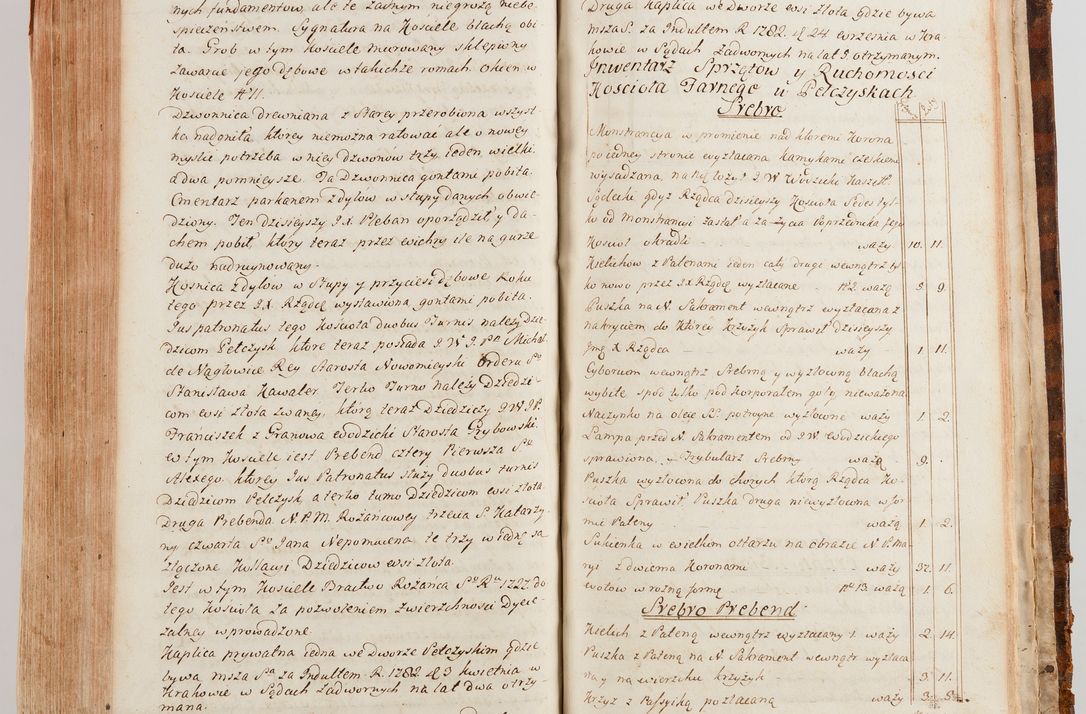 nych fundamentow, ale te żadnym niegrożą niebe-
spieczeństwem. Sygnatura na Kościele blachą obi-
ta. Grob w tym Kościele murowany sklepiony
zawarcie jego dębowe w takichże romach. Okien w
Kościele N 11.
Dzwonnica drewniana z Starey przerobiona wszyst-
ka nadgniła, ktorey niemożna ratować ale o nowey
myślić potrzeba w niey Dzwonów trzy ieden wielki
a dwa pomnieysze. Ta Dzwonnica gontami pobita.
Cmentarz parkanem z dylow w słupy danych obwie-
dziony. Ten Dzisieyszy J.X. Pleban oporządził y da-
chem pobił, który teraz przez wichry ile na gurze
dużo nadruynowany.
Kośnica z dylów w słupy y przyciesi dębowe Roku
tego przez J.X. Rządcę wystawiona, gontami pobita.
Jus patronatus tego Kościoła duobus Turnis należy Dzie-
dzicom Pełczysk które teraz posiada J.W.J.Pn Michał
de Nagłowice Rey Starosta Nowomieyski Orderu So
Stanisława Kawaler. Tertio Turno należy Dziedzi-
com wsi Złota zwaney, którą teraz Dziedziczy J.W.J.P.
Franciszek z Granowa Wodzicki Starosta Grybowski.
W tym Kościele iest Prebend cztery Pierwsza So
Alexego, ktorey Jus Patronatus służy duobus turnis
Dziedzicom Pełczysk, a tertio turno Dziedzicom wsi Złota
Druga Prebenda N.P.M. Rożańcowey trzecia S. Katarzy-
ny czwarta So Jana Nepomucena, te trzy w iedne są
złączone Kollacyi Dziedziców wsi Złota.
Jest w tym Kościele Bractwo Rożańca So Ru 1727. do
tego Kościoła za pozwoleniem Zwierzchności Dyece-
zalney wprowadzone.
Kaplica prywatna iedna we Dworze Pełczyskim gdzie
bywa msza Sa za Indultem R. 1782. d 3 kwietnia w
Krakowie w Sądach Zadwornych na lat dwa otrzy-
maną.
Druga Kaplica we Dworze wsi Złota gdzie bywa
msza S. za Indultem R. 1782. d 24 września w Kra-
kowie w Sądach Zadwornych na lat 3. otrzymanym.
Inwentarz Sprzętow y Ruchomosci
Kościoła Farnego w Pełczyskach
Srebro
Monstrancya w promienie nad któremi Korona
po iedney stronie wyzłacana Kamykami czeskiemi
wysadzana, na tę łożył J.W. Wodzicki Kaszt.
Sądecki gdyż Rządca dzisieyszy Kościoła Sedes tyl-
ko od Monstrancyi zastał a za życia Poprzednika jego
Kosciół okradli - waży 10. 11.
Kielichow z Patenami ieden cały drugi wewnątrz tyl-
ko nowo przez J.X Rządcę wyzłacane - No 2. ważą 3. 9.
Puszka na N. Sakrament wewnątrz wyzłacana z
nakryciem do którey krzyżyk sprawił dzisieyszy
Jmę X Rządca - waży 1. 11.
Cyborium wewnątrz Srebrną y wyzłoconą blachą
wybite spód tylko pod korporałem goły, nieważona
Naczynko na oleje SS. potroyne wyzłocone waży 1. 2.
Lampa przed N. Sakramentem od J.W. Wodzickiego
sprawiona. Trybularz Srebrny ważą 9.
Puszka wyzłocona do chorych którą Rządca Ko-
ścioła Sprawił. Puszka druga niewyzłocona w for-
mie Pateny ważą 1. 2.
Sukienka w wielkim ołtarzu na obrazie N.P.Ma-
ryi z dwiema Koronami waży 32. 11.
Wotow w rożną formę - No 13. ważą 1. 6.
Srebro Prebend
Kielich z Pateną wewnątrz wyzłacany 1. waży 2. 14.
Puszka z Pateną na N. Sakrament wewnątr wyzłaca
na y na wierzchu krzyżyk - 3. 11.
Krzyż z Passyiką pozłacaną waży 3.